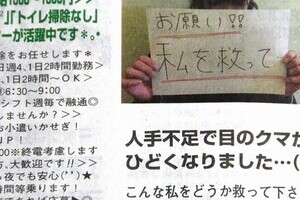 」「トイレ掃除なし」
ーが活躍中です*。
除をお任せします*
日週4、1日2時間勤務
1日2時間～OK〉
⑥6:30～9:00
シフト週毎で融通◎
しませんか？>>
お小遣いかせぎ！
UP！
:00※終電考慮します
方、大歓迎です!!>>
ら夜でも安心(^^)★
時間等優遇ります！
お願い!!
私を救って
人手不足で目のクマが
ひどくなりました…(
こんな私をどうか救って下さ